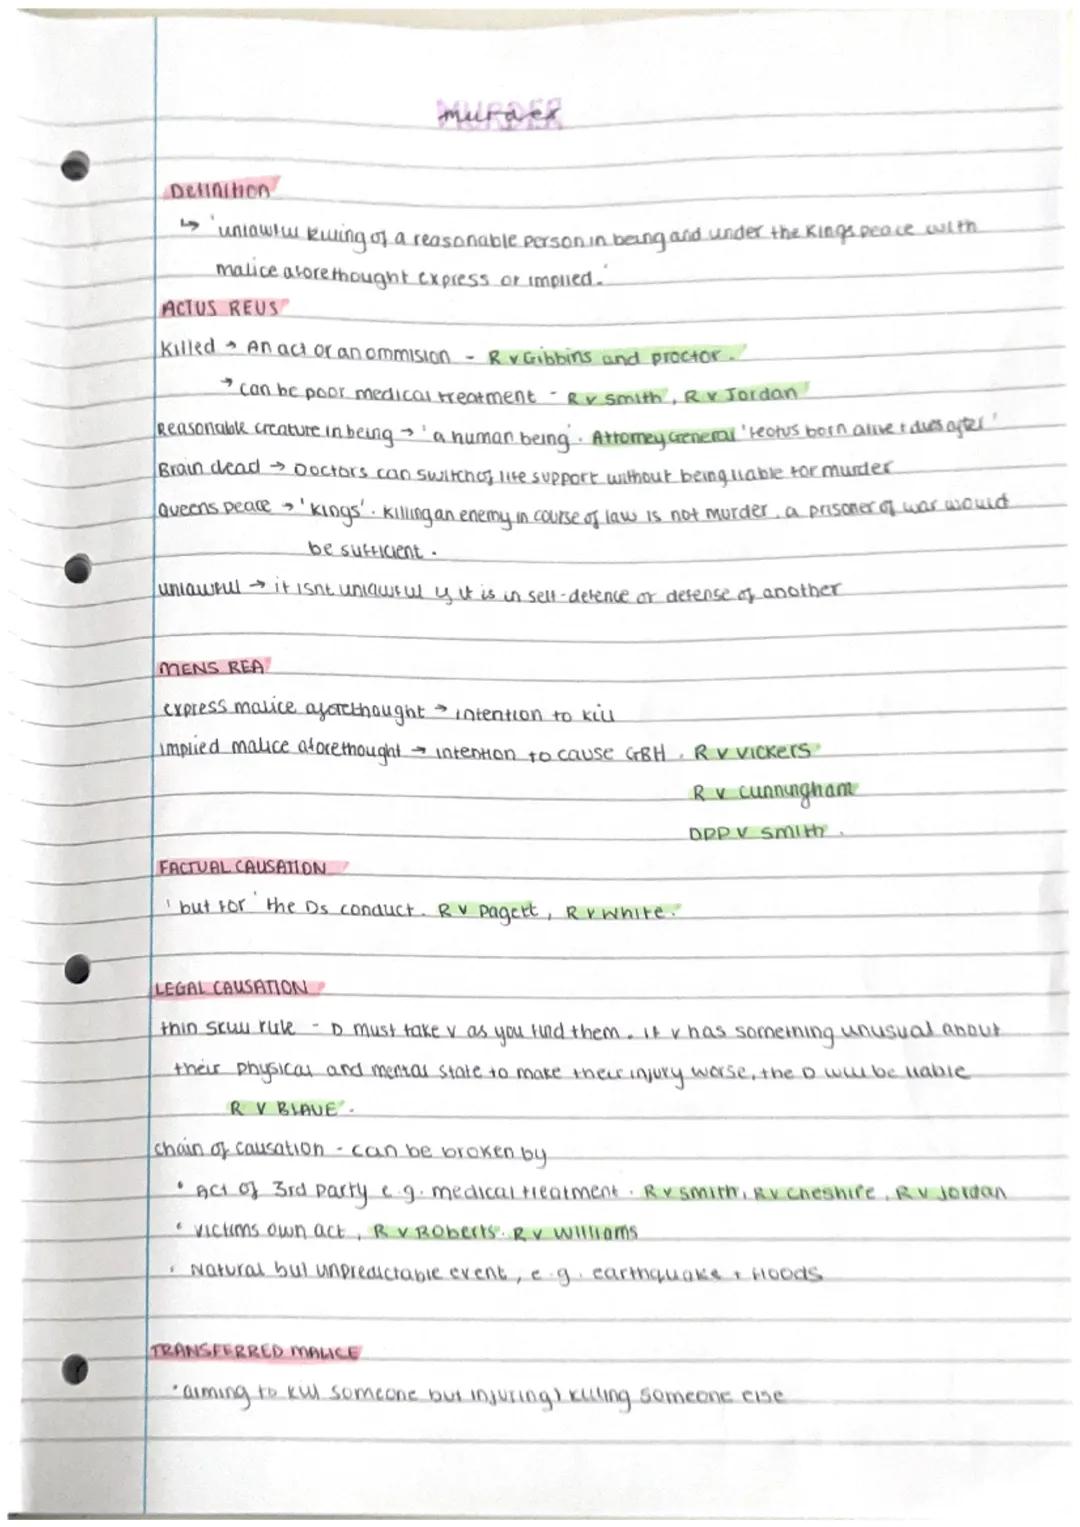 MURDER
murder
Definition
↳ 'unlawful killing of a reasonable person in being and under the Kings peace with
malice aforethought express or implied.'
ACTUS REUS
Killed → An act or an ommision - R v Gibbins and proctor.
→ can be poor medical treatment - R v Smith, R v Jordan
Reasonable creature in being → 'a human being'. Attorney General 'feotus born alive + dies after'
Brain dead → Doctors can switch of life support without being liable for murder
Queens peace → 'Kings'. Killing an enemy in course of law is not murder. a prisoner of war would
be sufficient.
unlawful → it isnt unlawful if it is in self-defence or defense of another
MENS REA
express malice aforethought → intention to kill
implied malice aforethought → intention to cause GBH. R v vickers
R v cunningham
DPP v Smith.
FACTUAL CAUSATION
'but for' the Ds conduct. R v pagett, R v White.
LEGAL CAUSATION
thin skull rule - D must take v as you find them. if v has something unusual about
their physical and mental state to make their injury worse, the D will be liable
R V BLAUE.
chain of causation - can be broken by
• Act of 3rd party e.g. medical treatment. R v smith, R v cheshire, R v Jordan
• victims own act, R v Roberts. R v Williams
• Natural but unpredictable event, e.g. earthquake + floods
TRANSFERRED MALICE
• aiming to kill someone but injuring/killing someone else